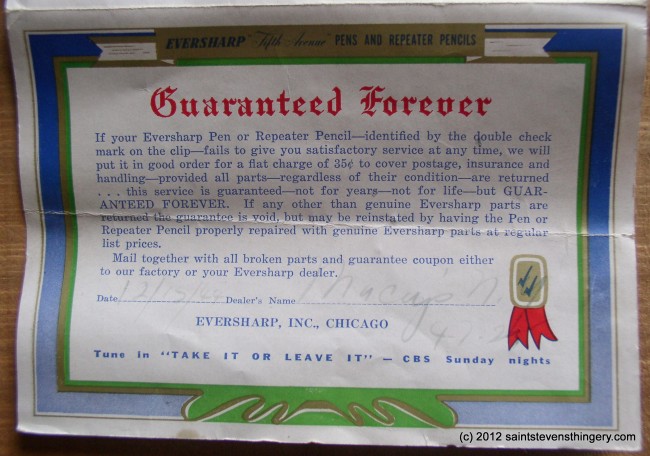 EVERSHARP "Fifth Avenue" PENS AND REPEATER PENCILS
Guaranteed Forever
If your Eversharp Pen or Repeater Pencil—identified by the double check
mark on the clip—fails to give you satisfactory service at any time, we will
put it in good order for a flat charge of 35¢ to cover postage, insurance and
handling—provided all parts—regardless of their condition—are returned
. . . this service is guaranteed—not for years—not for life—but GUAR-
ANTEED FOREVER. If any other than genuine Eversharp parts are
returned the guarantee is void, but may be reinstated by having the Pen or
Repeater Pencil properly repaired with genuine Eversharp parts at regular
list prices.
Mail together with all broken parts and guarantee coupon either
to our factory or your Eversharp dealer.
Date Dealer's Name
EVERSHARP, INC., CHICAGO
Tune in "TAKE IT OR LEAVE IT" — CBS Sunday nights
(c) 2012 saintstevensthingery.com